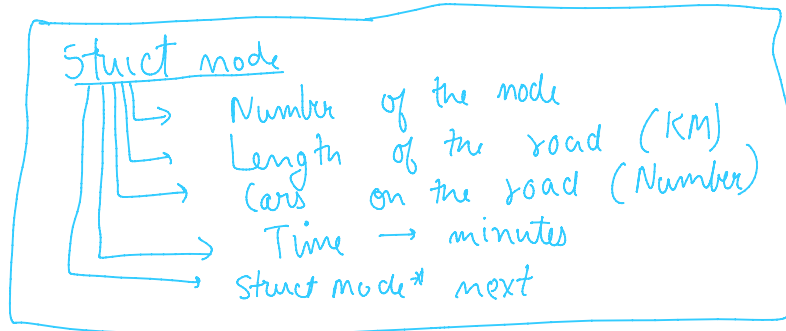 Struct node
Number of the node
Length of the road (KM)
Cars on the road (Number)
Time → minutes
struct node* next